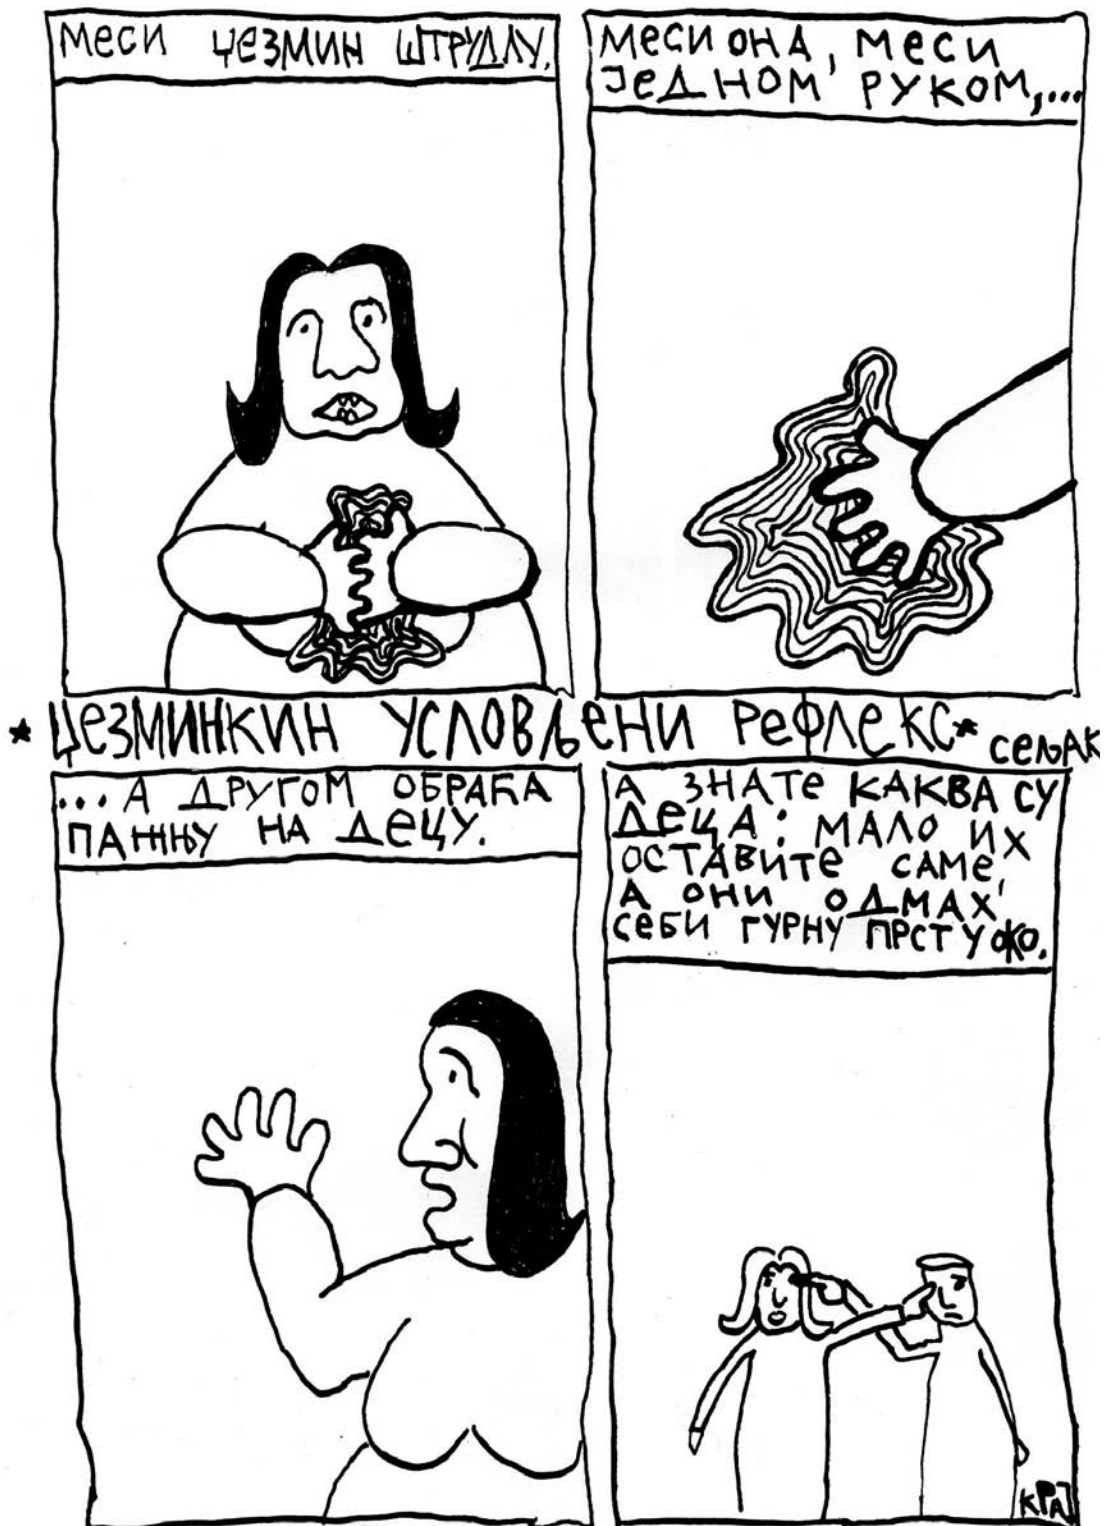 МЕСИ ЏЕЗМИН ШТРУДЛУ.
МЕСИ ОНА, МЕСИ
ЈЕДНОМ РУКОМ,...
* ЏЕЗМИНКИН УСЛОВЉЕНИ РЕФЛЕКС*
СЕЉАК
...А ДРУГОМ ОБРАЋА
ПАЖЊУ НА ДЕЦУ.
А ЗНАТЕ КАКВА СУ
ДЕЦА: МАЛО ИХ
ОСТАВИТЕ САМЕ,
А ОНИ ОДМАХ
СЕБИ ГУРНУ ПРСТ У ОКО.
КРАЈ